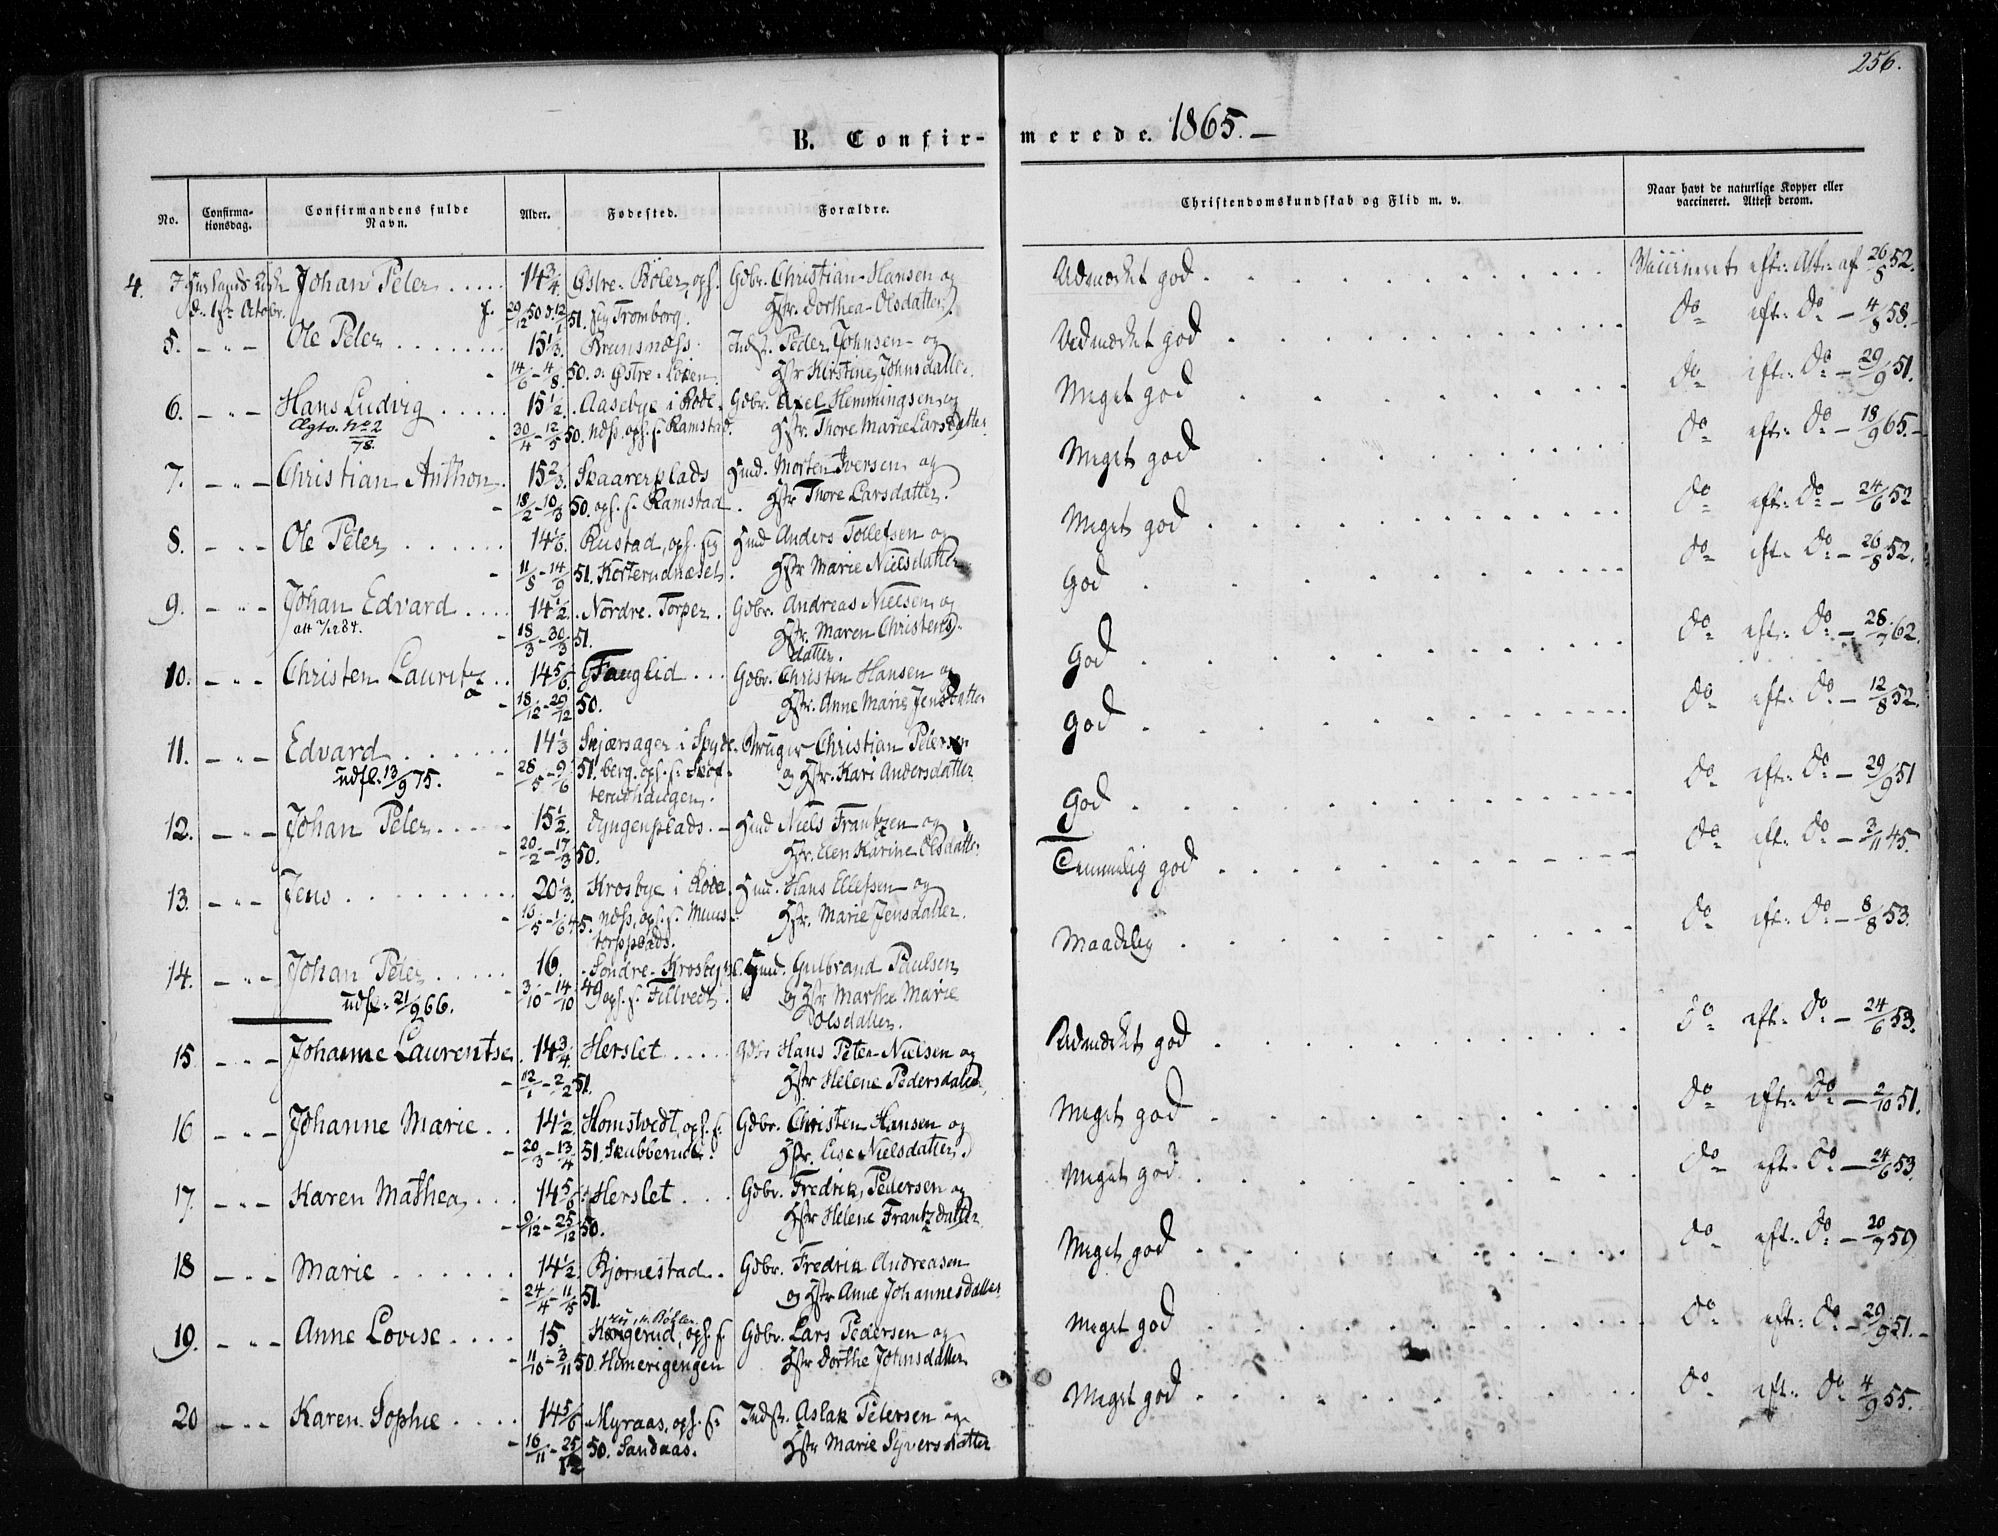 256.
B. Confir-merede. 1865.-
No.
Confirma-
tionsdag.
Confirmandens fulde
Navn.
Alder.
Fødested.
Forældre.
Christendomskundskab og Flid m. v.
Naar havt de naturlige Kopper eller
vaccineret. Attest derom.
4. Johan Peter ..... 14 3/4 Østre-Bøler, ops. Gdbr. Christian Hansen og Udmærket god Vaccineret eft: Att: af 26/8 52.
d: 1ste Octobr. f. 29/12 50 d. 12/1 51. Tromborg. Hstr. Dorthea Olsdatter.
5. - " - Ole Peter ..... 15 1/3. Brunsnæss. Indst. Peder Johnsen og Udmærket god do eft: do - 4/8 58.
14/6 - 4/8 50. Østre Hstr Kirstine Johnsdatter.
6. - " - Hans Ludvig ..... 15 1/2. Aasebye i Rode- Gdbr. Axel Hemmingsen og Meget god do eft: do - 29/9 51.
No 2/78. 30/4 - 12/5 50. næss, ops. f. Ramstad. Hstr. Thore Marie Larsdatter
7. - " - Christian Anthon. 15 2/3. Skaarerplads Hmd. Morten Iversen og Meget god do eft: do - 18/9 65.
18/2 - 10/3 50. ops. f. Ramstad. Hstr Thore Larsdatter.
8. - " - Ole Peter ..... 14 1/6. Rustad, ops. Hmd Anders Tollefsen og Meget god do eft: do - 24/6 52
11/8 - 14/9 51. Kosterudnæset. Hstr Marie Nielsdatter
9. - " - Johan Edvard .... 14 1/2. Nordre Torper. Gdbr. Andreas Nielsen og God do eft: do - 26/8 52.
att 7/12 84. 18/3 - 30/3 51. Hstr. Maren Christens-
datter.
10. - " - Christen Lauritz .. 14 5/6. Fauglid ... Gdbr. Christen Hansen og God do eft: do - 28/7 62.
18/12 - 29/12 50. Hstr. Anne Marie Jensdatter
11. - " - Edvard ..... 14 1/3 Skjærsager i Spyde- Bruger Christian Petersen God do eft: do - 12/8 52.
udfl. 13/9 75. 28/5 - 9/6 51. berg. ops. f. Skof- og Hstr. Kari Andersdatter
terudhaugen.
12. - " - Johan Peter ..... 15 1/2. Dyngenplads. - Hmd Niels Frantzen og God do eft: do - 29/9 51
20/2 - 17/3 50. Hstr. Elen Karine Olsdatter.
13. - " - Jens ..... 20 1/3. Krosbye i Rode- Hmd. Hans Ellefsen og Temmelig god do eft: do - 3/11 45.
16/5 - 1/6 45. næss, ops. f. Muus- Hstr. Marie Jensdatter.
torpplads.
14. - " - Johan Peter ..... 16. Søndre Krosbypl. Hmd. Gulbrand Paulsen Maadelig do eft: do - 8/8 53.
udfl. 21/9 66. 3/10 - 14/10 49 ops. f. Tillvedt. og Hstr Marthe Marie
Olsdatter.
15 - " - Johanne Laurentse. 14 3/4 Herslet ..... Gdbr Hans Peter Nielsen og Udmærket god do eft: do - 24/6 53.
12/1 - 2/2 51. Hstr Helene Pedersdatter
16 - " - Johanne Marie .. 14 1/2 Homstvedt, ops. f. Gdbr. Christen Hansen og Meget god do eft: do - 2/10 51.
20/3 - 13/4 51. Skubberud. Hstr. Lise Nielsdatter.
17. - " - Karen Mathea ... 14 5/6 Herslet .... Gdbr. Fredrik Pedersen og Meget god do eft: do - 24/6 53.
9/12 - 25/12 50. Hstr Helene Frantzdatter.
18 - " - Marie ..... 14 1/2. Bjørnestad .. Gdbr. Fredrik Andreasen Meget god do eft: do - 20/7 59
24/4 - 11/5 51. og Hstr Anne Johannesdatter
19. - " - Anne Lovise .... 15. Kongerud, ops. f Gdbr. Lars Pedersen og Meget god do eft: do - 29/9 51.
11/10 - 3/11 50. Himerigengen Hstr Dorthe Johnsdatter
20 - " - Karen Sophie .... 14 5/6 Myraas, ops. f. Indst. Aslak Petersen og Meget god do eft: do 4/9 55.
16/11 - 25/12 50. Sandaas. Hstr Marie Syversdatter